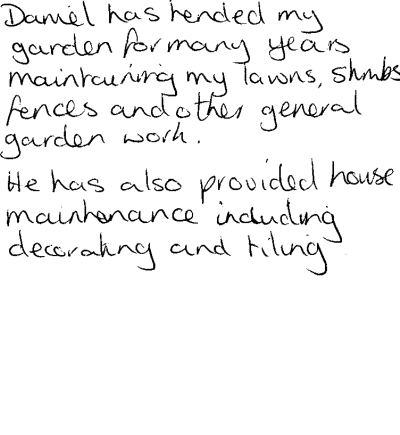 Daniel has tended my
garden for many years
maintaining my lawns, shrubs
fences and other general
garden work.
He has also provided house
maintenance including
decorating and tiling